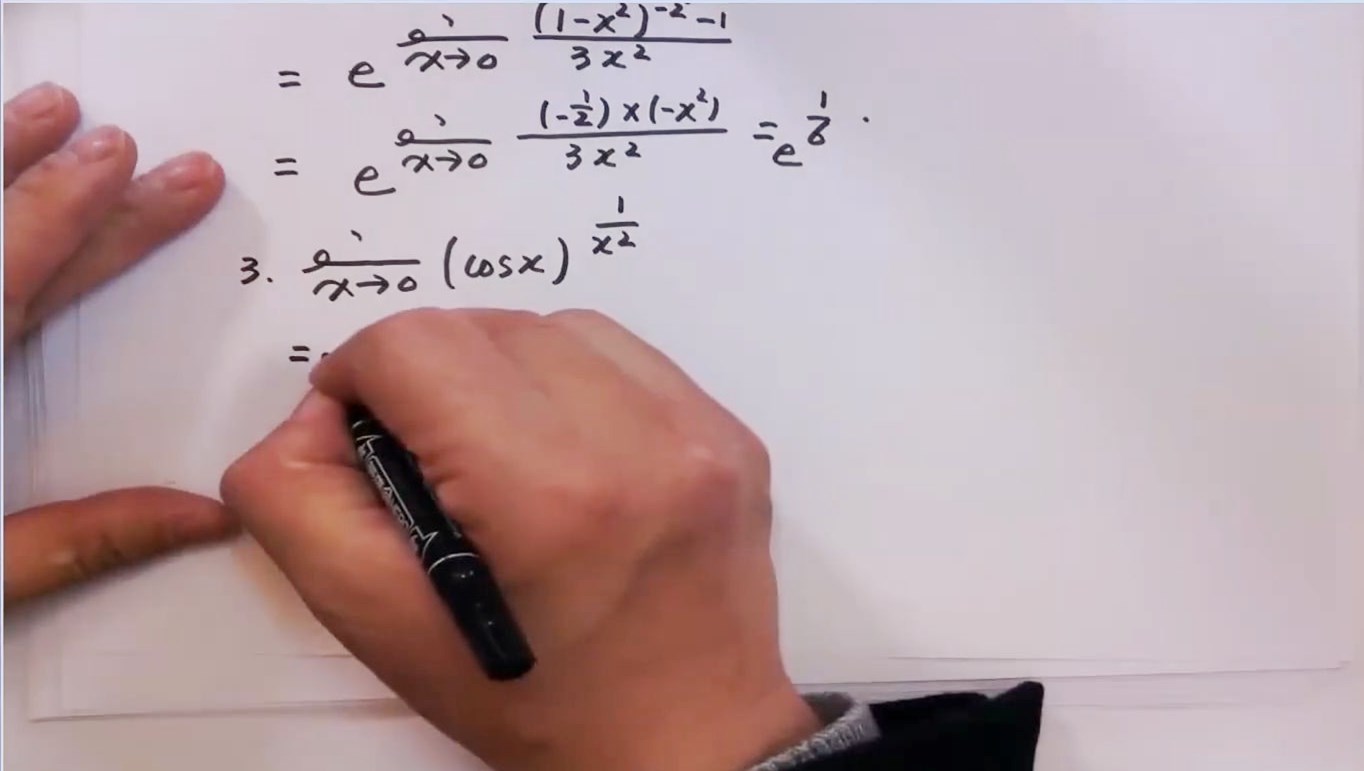 = e^{lim_{x→0} \frac{(1-x²)^{-\frac{1}{2}}-1}{3x²}}
= e^{lim_{x→0} \frac{(-\frac{1}{2})×(-x²)}{3x²}} = e^{\frac{1}{6}}.
3. lim_{x→0} (cosx)^{\frac{1}{x²}}
=